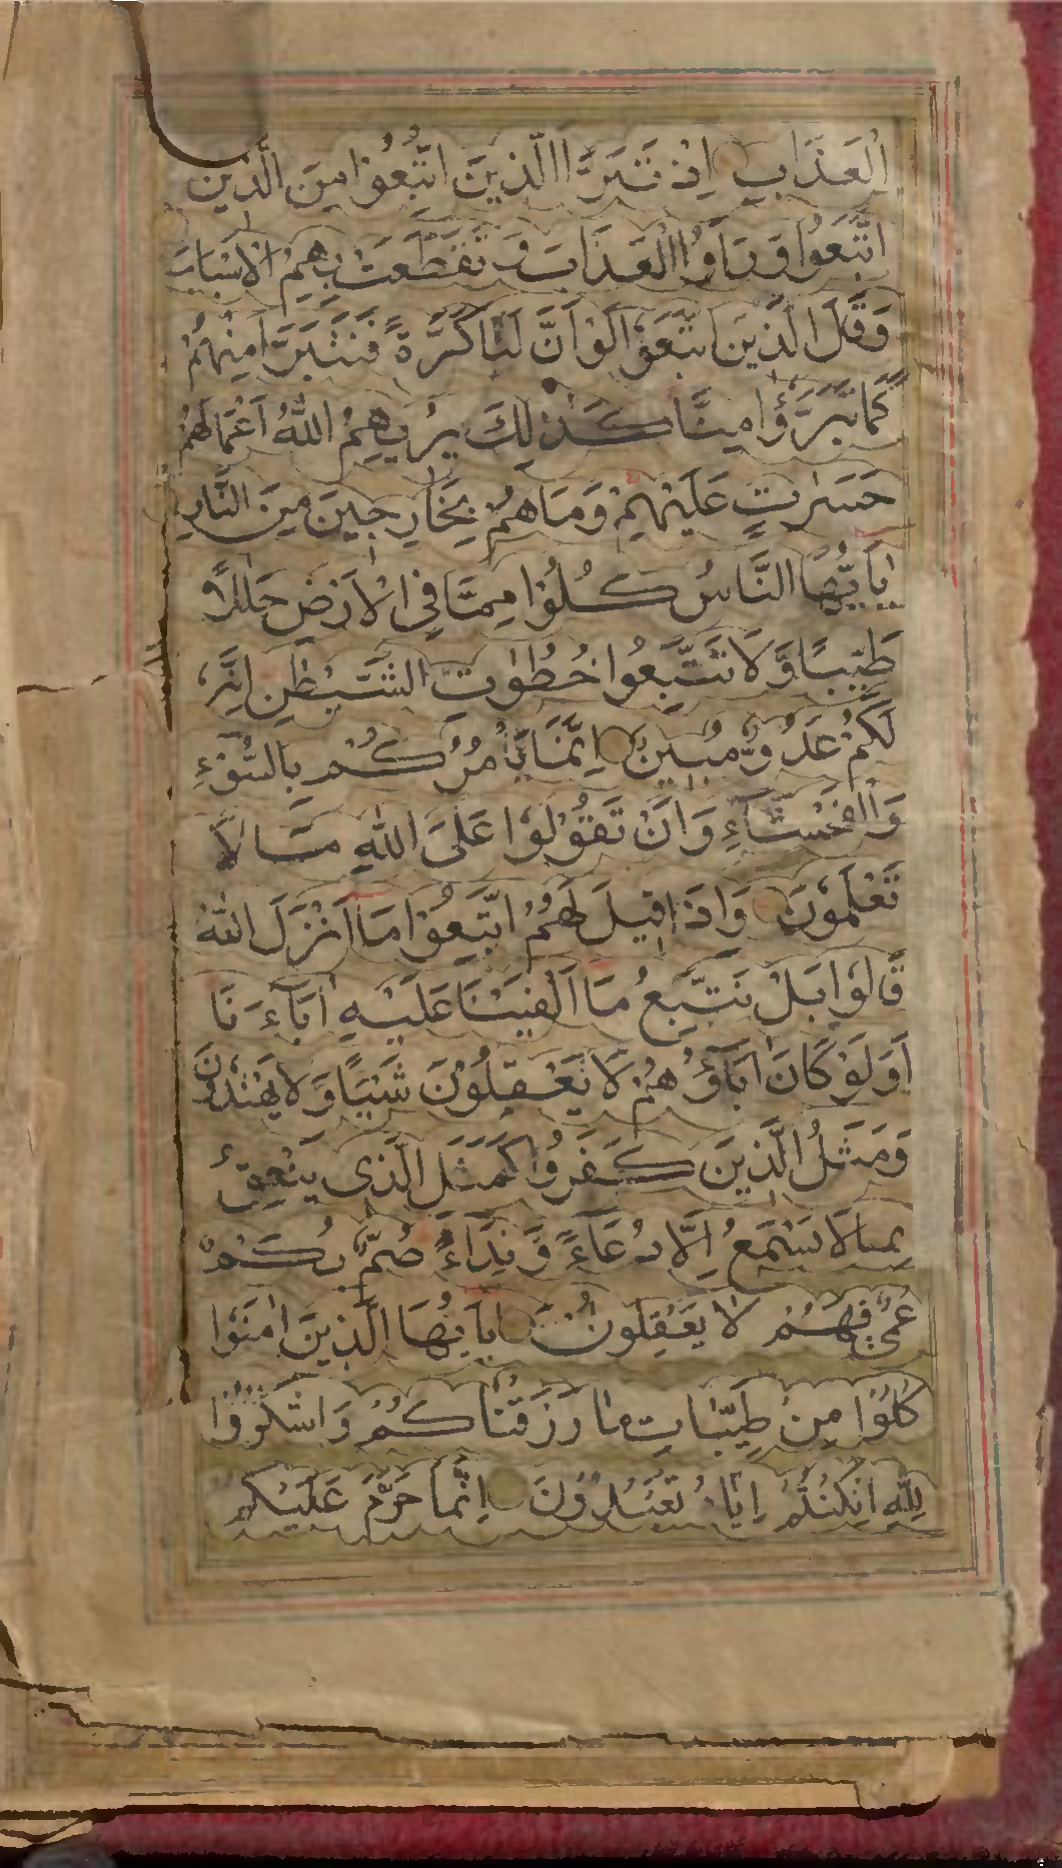 الْعَذَابِ اِذْ تَبَرَّاَ الَّذِيْنَ اتُّبِعُوْا مِنَ الَّذِيْنَ
اتَّبَعُوْا وَرَاَوُا الْعَذَابَ وَ تَقَطَّعَتْ بِهِمُ الْاَسْبَابُ
وَقَالَ الَّذِيْنَ اتَّبَعُوْا لَوْ اَنَّ لَنَا كَرَّةً فَنَتَبَرَّاَ مِنْهُمْ
كَمَا تَبَرَّءُوْا مِنَّا كَذٰلِكَ يُرِيْهِمُ اللّٰهُ اَعْمَالَهُمْ
حَسَرٰتٍ عَلَيْهِمْ وَمَا هُمْ بِخَارِجِيْنَ مِنَ النَّارِ
يٰاَيُّهَا النَّاسُ كُلُوْا مِمَّا فِي الْاَرْضِ حَلٰلًا
طَيِّبًا وَّلَا تَتَّبِعُوْا خُطُوٰتِ الشَّيْطٰنِ اِنَّهٗ
لَكُمْ عَدُوٌّ مُّبِيْنٌ اِنَّمَا يَاْمُرُكُمْ بِالسُّوْٓءِ
وَالْفَحْشَآءِ وَاَنْ تَقُوْلُوْا عَلَى اللّٰهِ مَا لَا
تَعْلَمُوْنَ وَاِذَا قِيْلَ لَهُمُ اتَّبِعُوْا مَا اَنْزَلَ اللّٰهُ
قَالُوْا بَلْ نَتَّبِعُ مَا اَلْفَيْنَا عَلَيْهِ اٰبَآءَنَا
اَوَلَوْ كَانَ اٰبَآؤُهُمْ لَا يَعْقِلُوْنَ شَيْئًا وَّلَا يَهْتَدُوْنَ
وَمَثَلُ الَّذِيْنَ كَفَرُوْا كَمَثَلِ الَّذِي يَنْعِقُ
بِمَا لَا يَسْمَعُ اِلَّا دُعَآءً وَّنِدَآءً صُمٌّ بُكْمٌ
عُمْيٌ فَهُمْ لَا يَعْقِلُوْنَ يٰاَيُّهَا الَّذِيْنَ اٰمَنُوْا
كُلُوْا مِنْ طَيِّبَاتِ مَا رَزَقْنَاكُمْ وَاشْكُرُوْا
لِلّٰهِ اِنْ كُنْتُمْ اِيَّاهُ تَعْبُدُوْنَ اِنَّمَا حَرَّمَ عَلَيْكُمُ